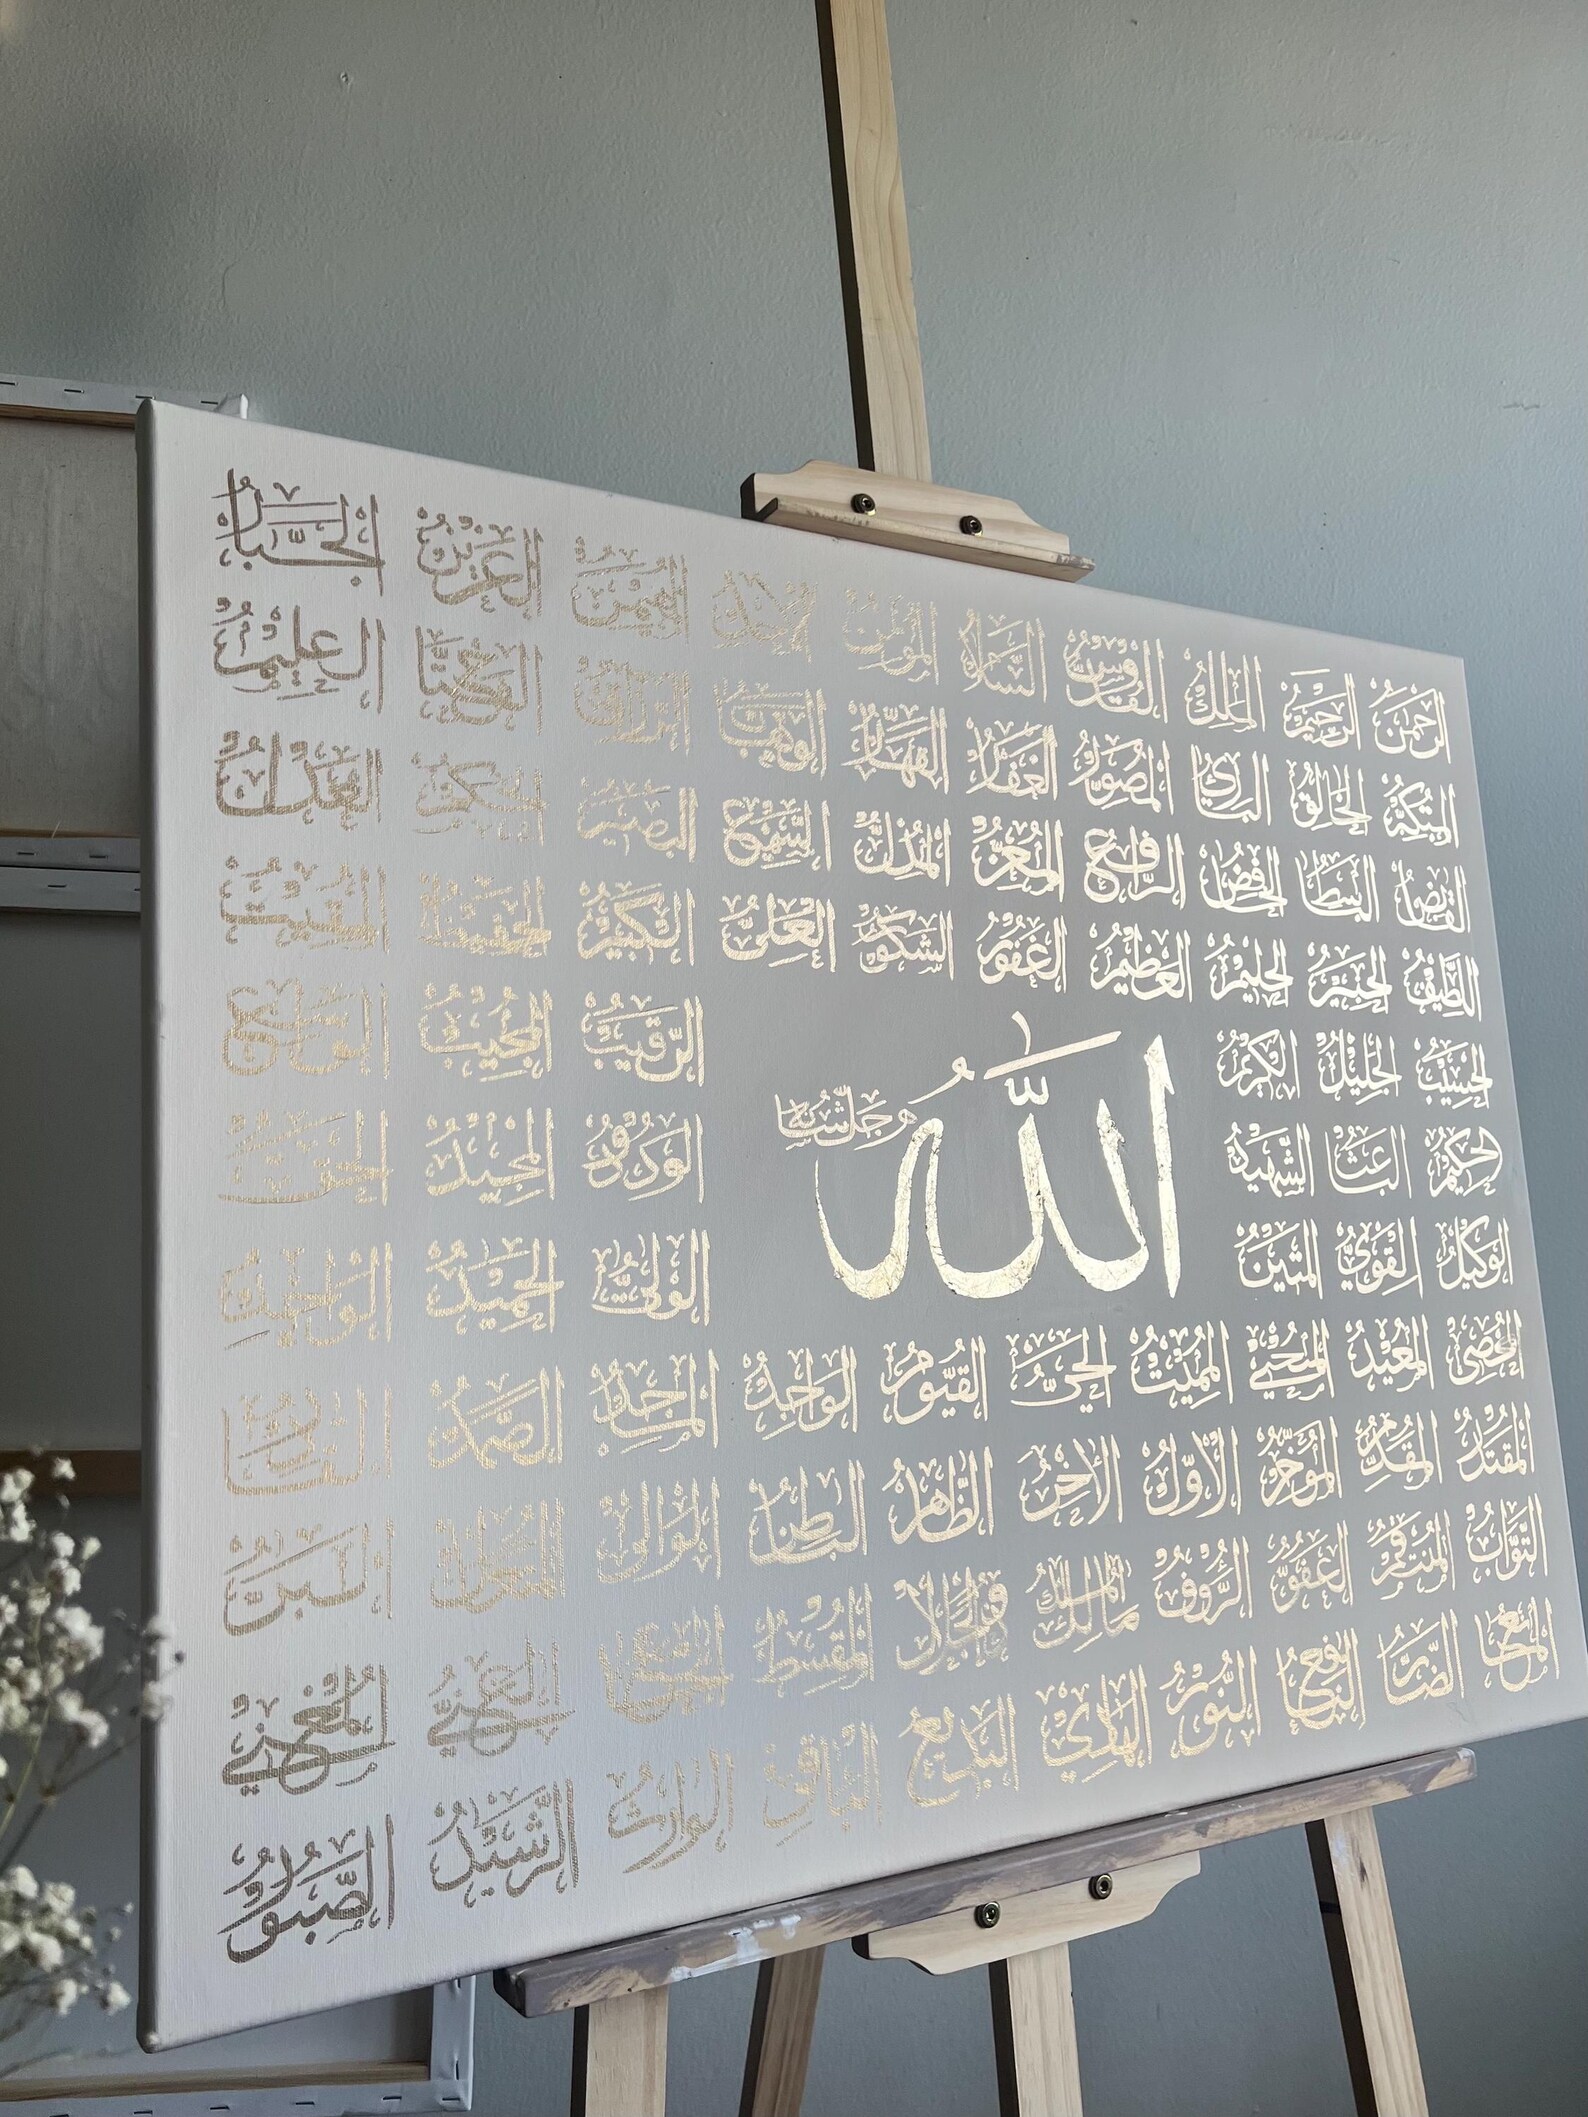 الرَّحْمٰنُ الرَّحِيْمُ الْمَلِكُ الْقُدُّوْسُ السَّلَامُ الْمُؤْمِنُ الْمُهَيْمِنُ الْعَزِيْزُ الْجَبَّارُ
الْمُتَكَبِّرُ الْخَالِقُ الْبَارِئُ الْمُصَوِّرُ الْغَفَّارُ الْقَهَّارُ الْوَهَّابُ الرَّزَّاقُ الْفَتَّاحُ الْعَلِيْمُ
الْقَابِضُ الْبَاسِطُ الْخَافِضُ الرَّافِعُ الْمُعِزُّ الْمُذِلُّ السَّمِيْعُ الْبَصِيْرُ الْحَكَمُ الْعَدْلُ
اللَّطِيْفُ الْخَبِيْرُ الْحَلِيْمُ الْعَظِيْمُ الْغَفُوْرُ الشَّكُوْرُ الْعَلِىُّ الْكَبِيْرُ الْحَفِيْظُ الْمُقِيْتُ
الْحَسِيْبُ الْجَلِيْلُ الْكَرِيْمُ الرَّقِيْبُ الْمُجِيْبُ الْوَاسِعُ
الْحَكِيْمُ الْبَاعِثُ الشَّهِيْدُ اللّٰهُ جَلَّ شَانُهُ الْوَدُوْدُ الْمَجِيْدُ الْحَقُّ
الْوَكِيْلُ الْقَوِيُّ الْمَتِيْنُ الْوَلِيُّ الْحَمِيْدُ الْوَاحِدُ
الْمُحْصِى الْمُعِيْدُ الْمُحْيِي الْمُمِيْتُ الْحَيُّ الْقَيُّوْمُ الْوَاجِدُ الْمَاجِدُ الصَّمَدُ
الْمُقْتَدِرُ الْمُقَدِّمُ الْمُؤَخِّرُ الْأَوَّلُ الْأَخِرُ الظَّاهِرُ الْبَاطِنُ الْوَالِي الْمُتَعَالِ الْبَرُّ
التَّوَّابُ الْمُنْتَقِمُ الْعَفُوُّ الرَّؤُوْفُ مَالِكُ الْمُلْكِ الْمُقْسِطُ الْغَنِيُّ الْمُغْنِيُ
الْمَانِعُ الضَّارُّ النَّافِعُ النُّوْرُ الْهَادِيُ الْبَدِيْعُ الْبَاقِيُ الْوَارِثُ الرَّشِيْدُ الصَّبُوْرُ